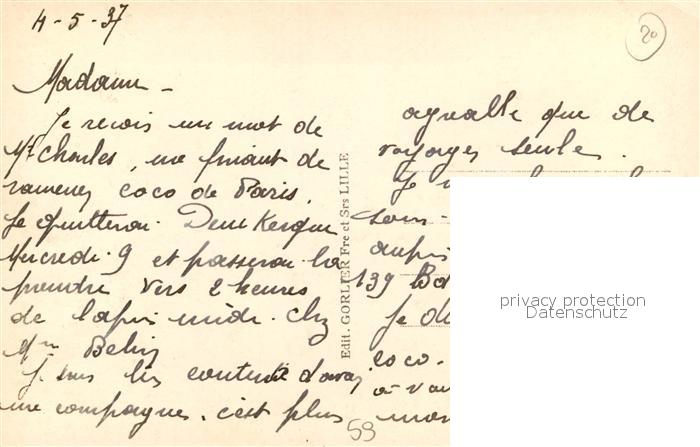 4-5-37
20
Madame -
Je reçois un mot de
Mr Charles, me priant de
ramener coco de Paris.
Je quitterai Dunkerque
Mercredi 9 et passerai la
prendre vers 2 heures
de l'après midi. Chez
Mme
Je suis très contente d'avoir
une compagne, c'est plus
agréable que de
voyager seule.
Je
139
Je
coco.
à
59
Edit. GORLIER Fre et Srs LILLE
privacy protection
Datenschutz